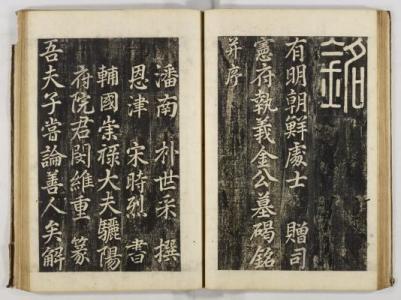 銘
有明朝鮮處士 贈司
憲府執義金公墓碣銘
幷序
潘南 朴世采 撰
恩津 宋時烈 書
輔國崇祿大夫驪陽
府院君閔維重 篆
吾夫子嘗論善人矣解